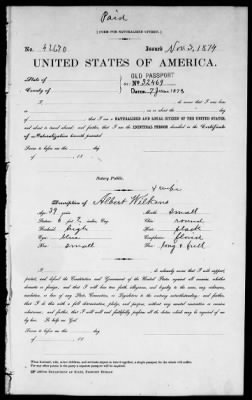 Paid
[FORM FOR NATURALIZED CITIZEN.]
No. 42670 Issued Nov. 3, 1874
UNITED STATES OF AMERICA.
State of
County of
OLD PASSPORT
No. 32469
DATED 7 June 1873
I, do solemnly swear that I was born
in on or about the day
of that I am a NATURALIZED AND LOYAL CITIZEN OF THE UNITED STATES,
and about to travel abroad; and further, that I am the IDENTICAL PERSON described in the Certificate
of Naturalization herewith presented.
Sworn to before me this day
of 18
Notary Public.
& wife
Description of Albert Wilkens
Age: 39 years Mouth: small
Stature: 6 feet 2 inches, Eng. Chin: round
Forehead: high Hair: black
Eyes: blue Complexion: florid
Nose: small Face: long & full
I, do solemnly swear that I will support,
protect, and defend the Constitution and Government of the United States against all enemies, whether
domestic or foreign; and that I will bear true faith, allegiance, and loyalty to the same, any ordinance,
resolution, or law of any State, Convention, or Legislature to the contrary notwithstanding; and further, that
I do this with a full determination, pledge, and purpose, without any mental reservation or evasion
whatsoever; and further, that I will well and faithfully perform all the duties which may be required of me
by law: So help me God.
Sworn to before me this day
of 18